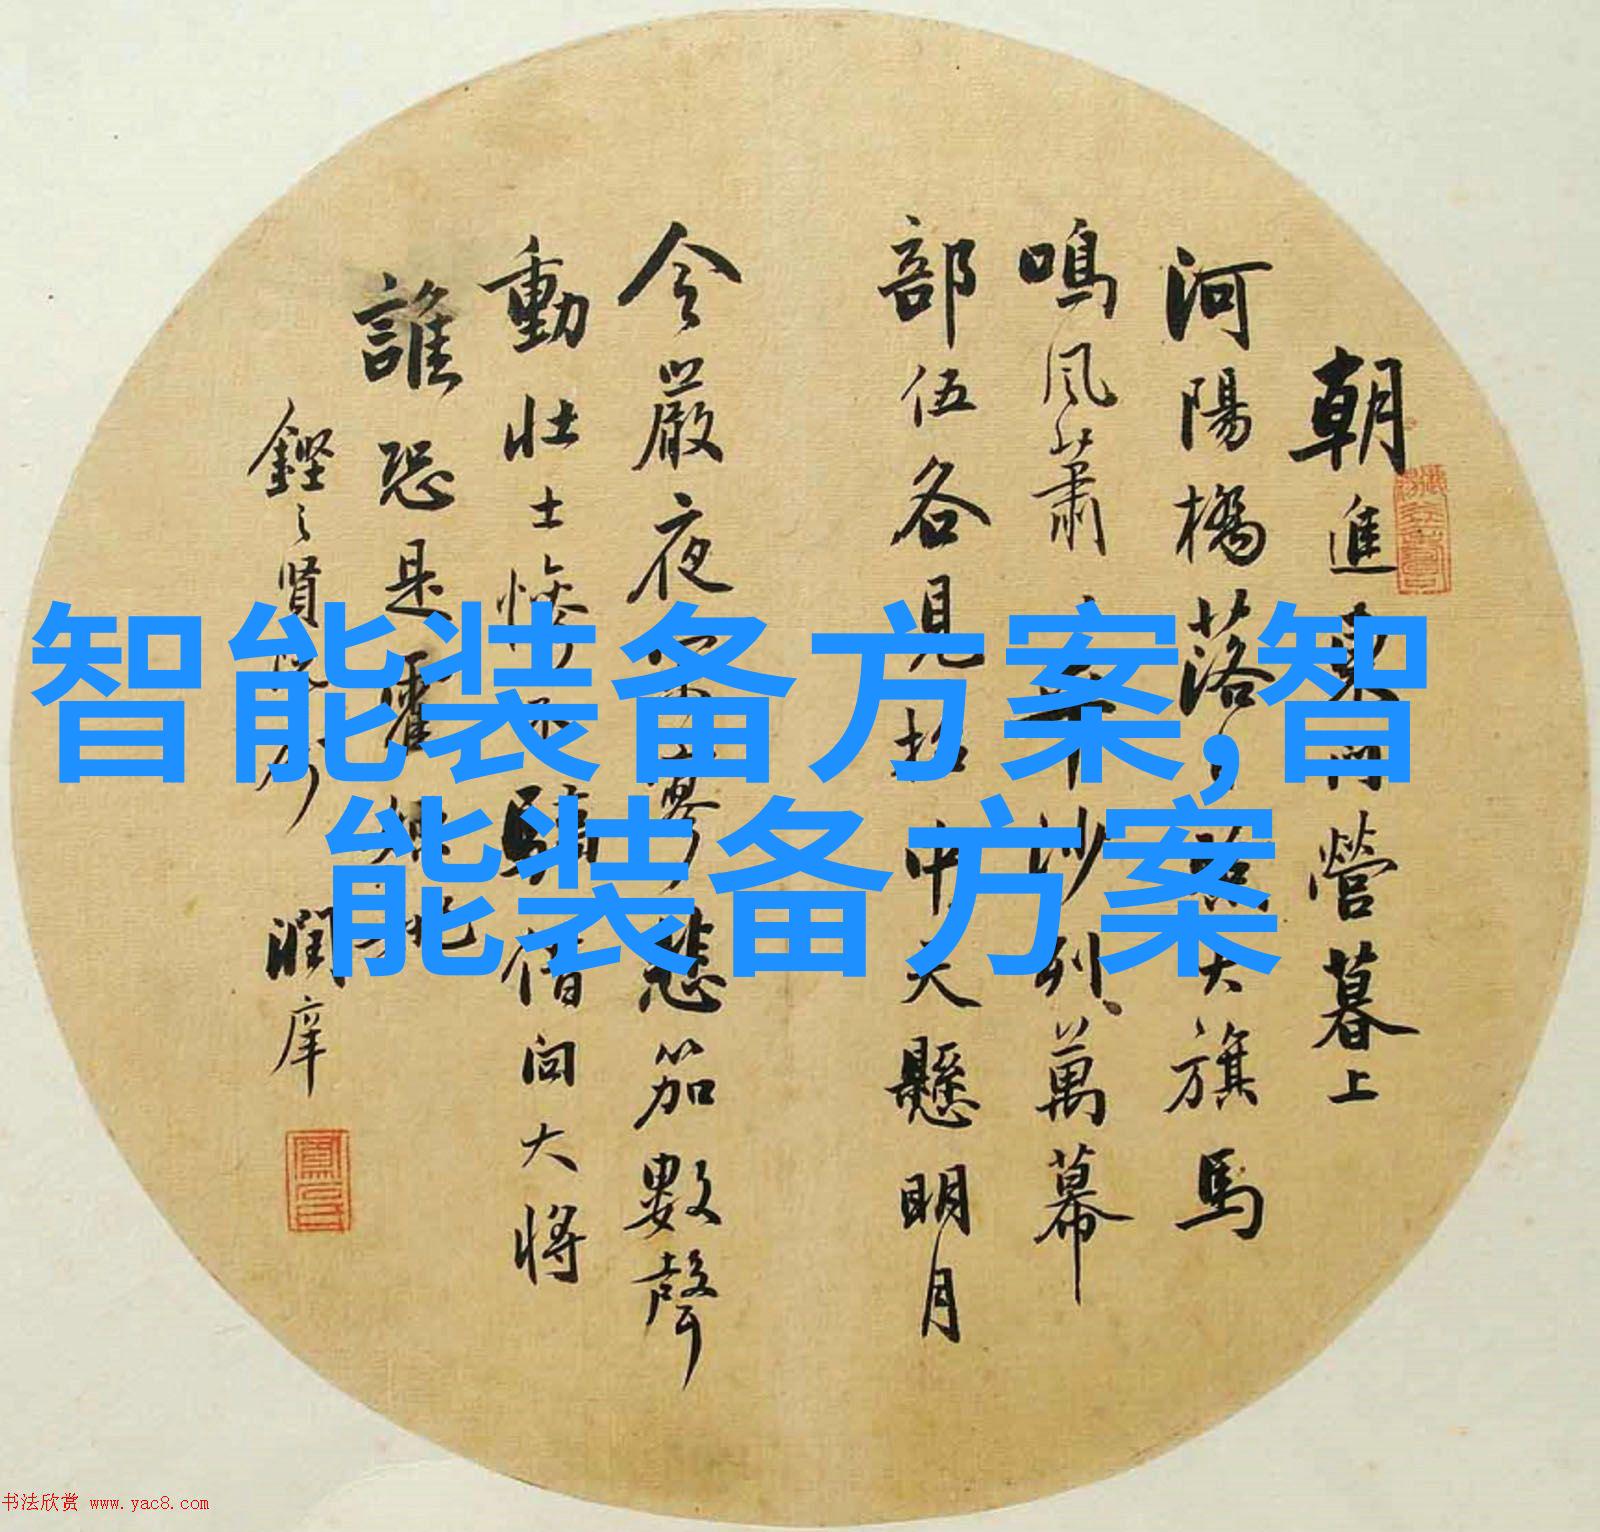 智能装备方案,智
能装备方案
朝進東門營暮上
河陽橋落大旗馬
鳴風蕭平沙列萬幕
部伍各見招中天懸明月
令嚴夜寥悲笳數聲
動壯士慘不驕借问大將
誰恐是霍姚
鏗賢潤庠
书法欣赏 www.yac8.com